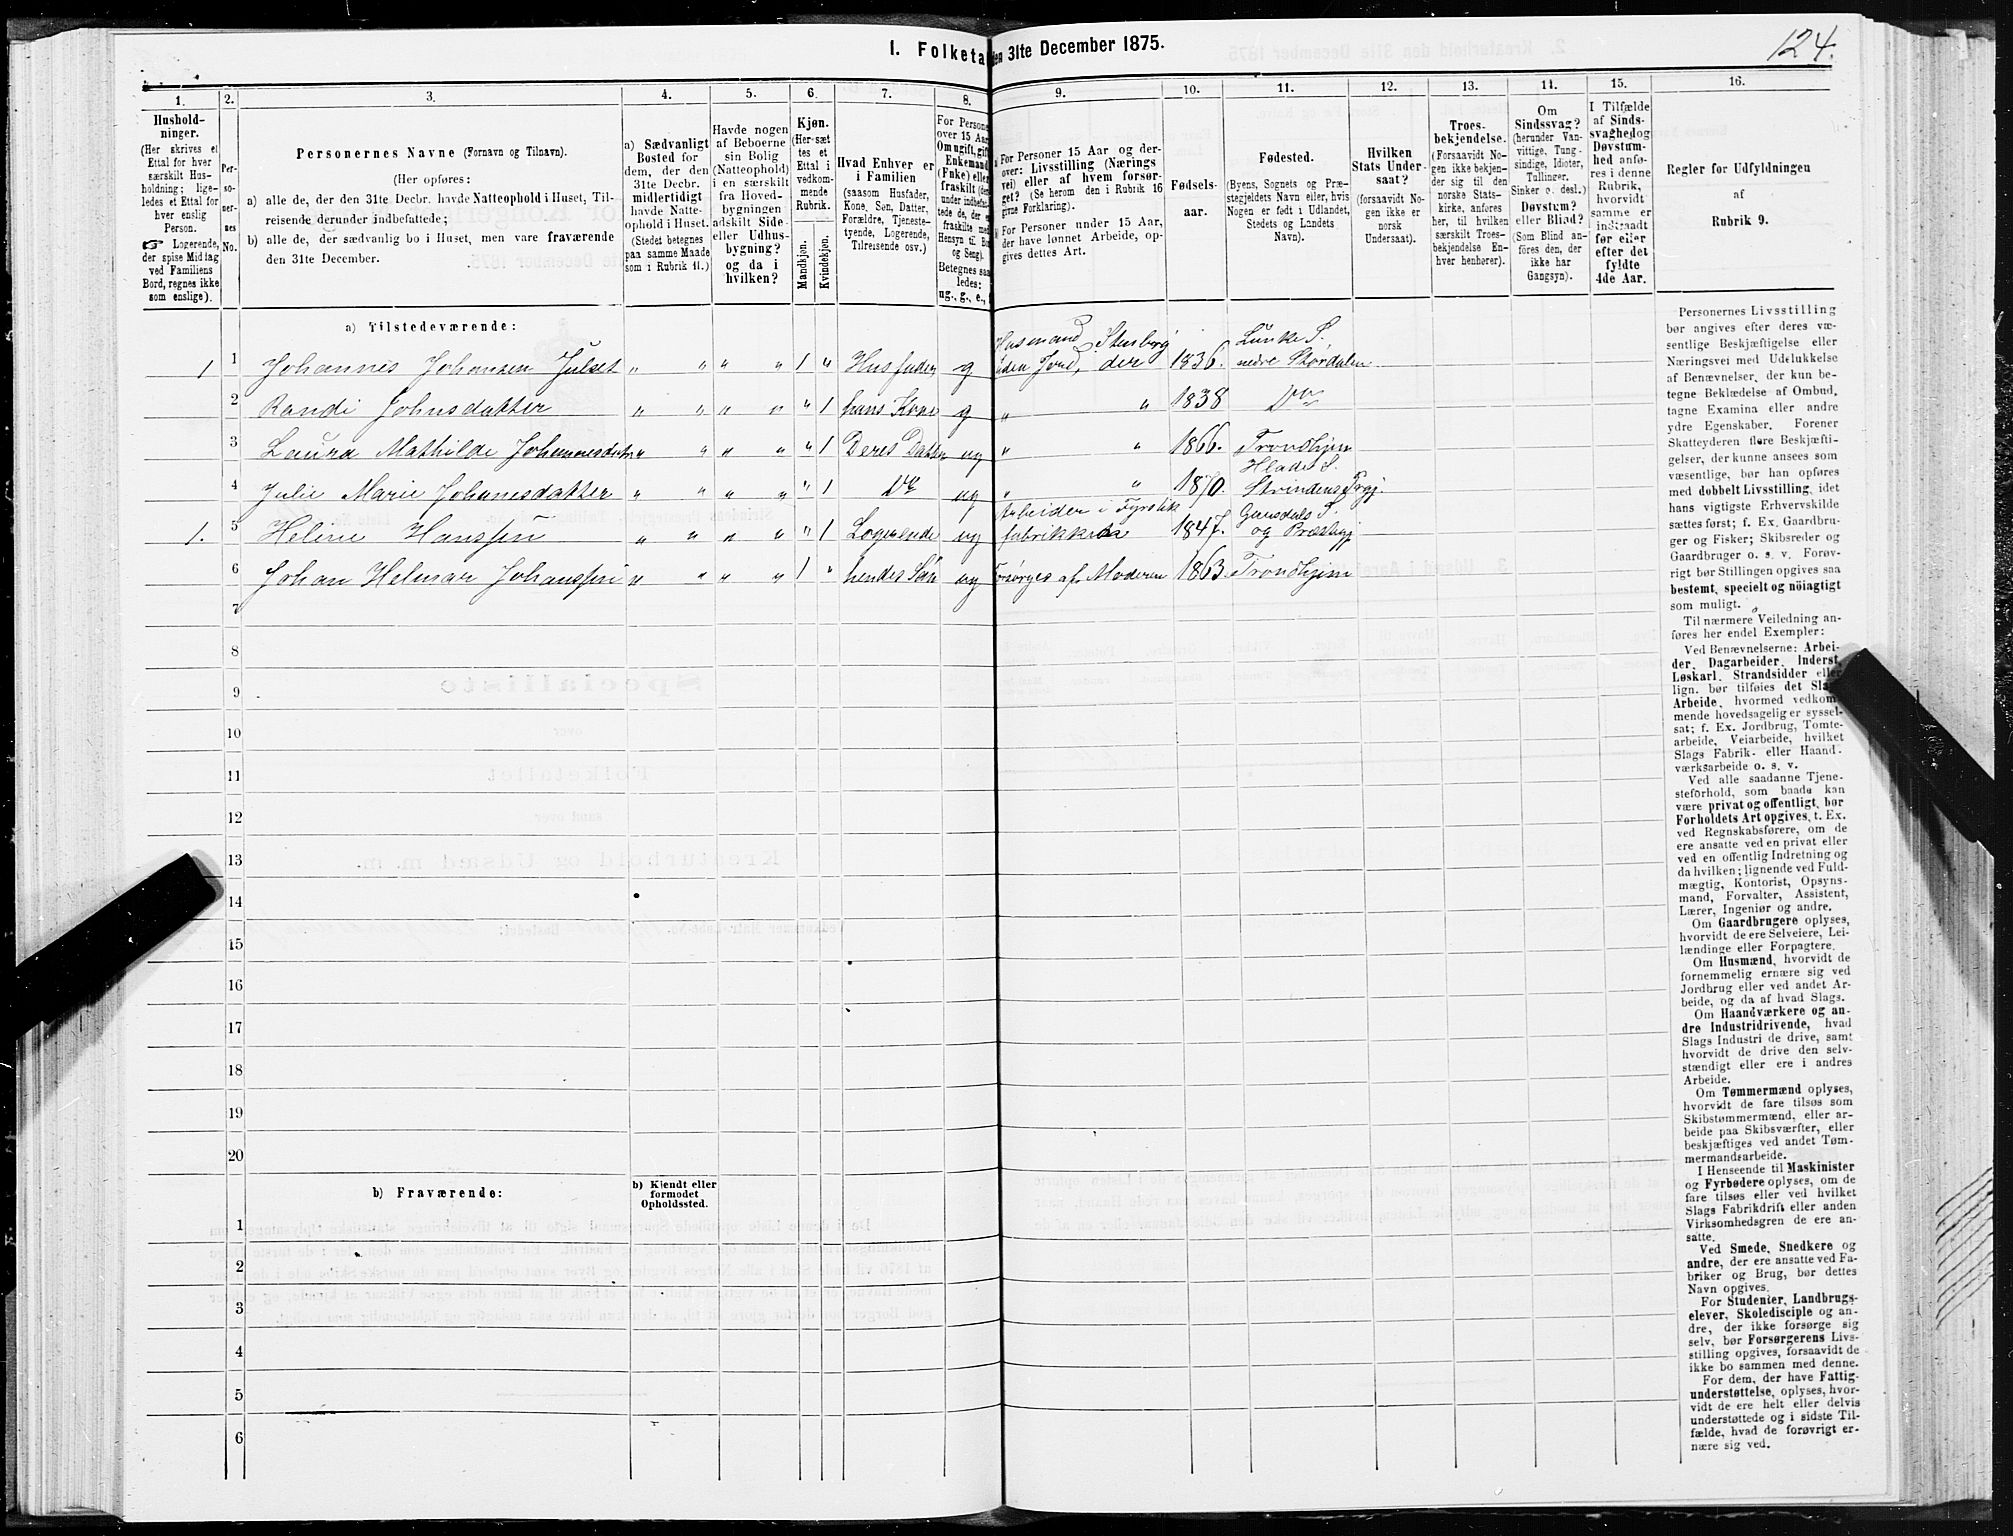 I. Folketa
en 31te December 1875.
124.
1.
2.
3.
4.
5.
6.
7.
8.
9.
10.
11.
12.
13.
14.
15.
16.
Hushold-
ninger.
(Her skrives et
Ettal for hver
særskilt Hus-
holdning; lige-
ledes et Ettal for
hver enslig
Person.
☞ Logerende,
der spise Middag
ved Familiens
Bord, regnes ikke
som enslige).
Per-
so-
ner-
nes
No.
Personernes Navne (Fornavn og Tilnavn).
(Her opføres:
a) alle de, der den 31te Decbr. havde Natteophold i Huset, Til-
reisende derunder indbefattede;
b) alle de, der sædvanlig bo i Huset, men vare fraværende
den 31te December.
a) Sædvanligt
Bosted for
dem, der den
31te Decbr.
midlertidigt
havde Natte-
ophold i Huset.
(Stedet betegnes
paa samme Maade
som i Rubrik 11.)
Havde nogen
af Beboerne
sin Bolig
(Natteophold)
i en særskilt
fra Hoved-
bygningen
adskilt Side-
eller Udhus-
bygning?
og da i
hvilken?
Kjøn.
(Her sæt-
tes et
Ettal i
vedkom-
mende
Rubrik.
Mandkjøn.
Kvindekjøn.
Hvad Enhver er
i Familien
(saasom Husfader,
Kone, Søn, Datter,
Forældre, Tjeneste-
tyende, Logerende,
Tilreisende osv.)
For Persone
over 15 Aar
Om ugift, gift
Enkemand
(Enke) eller
fraskilt (der-
under indbefat-
tede de, der e
fraskilte med
Hensyn til Bo
og Seng).
Betegnes saa
ledes:
ug., g., e.,
For Personer 15 Aar og der-
over: Livsstilling (Nærings
vei) eller af hvem forsør-
get? (Se herom den i Rubrik 16
givne Forklaring).
For Personer under 15 Aar,
der have lønnet Arbeide, op-
gives dettes Art.
Fødsels-
aar.
Fødested.
(Byens, Sognets og Præ-
stegjeldets Navn eller, hvis
Nogen er født i Udlandet,
Stedets og Landets
Navn).
Hvilken
Stats Under-
saat?
(forsaavidt No-
gen ikke er
norsk
Undersaat).
Troes-
bekjendelse.
(Forsaavidt No-
gen ikke bekjen-
der sig til den
norske Stats-
kirke, anføres
her, til hvilken
særskilt Troes-
bekjendelse En-
hver henhører).
Om
Sindssvag?
(herunder Van-
vittige, Tung-
sindige, Idioter,
Tullinger,
Sinker o. desl.)
Døvstum?
eller Blind?
(Som Blind an-
føres den, der
ikke har
Gangsyn).
I Tilfælde
af Sinds-
svaghed og
Døvstum-
hed anfø-
res i denne
Rubrik,
hvorvidt
samme er
indtraadt
før eller
efter det
fyldte
4de Aar.
Regler for Udfyldningen
af
Rubrik 9.
a) Tilstedeværende:
1 1 Johannes Johansen Julset " " " " 1 " Husfader g Husmand uden Jord, Stenbryder 1836. Lunke S. nedre Stordalen
2 Randi Johnsdatter " " " " " 1 hans Kone g " " 1838 Do
3 Laura Mathilde Johannesdatr " " " " " 1 Deres Datter ug " " 1866. Trondhjem
4 Julie Marie Johanesdatter " " " " " 1 Do ug " " 1870. Hlade S. Strindens Prgj.
1. 5 Heline Hanssen " " " " " 1 Logerende ug Arbeider i Fyrstik fabrikken 1847. og Præstegj
6 Johan Helmar Johanssen " " " " 1 " hendes Søn ug Forsørges af Moderen 1863. Trondhjem
7
8
9
10
11
12
13
14
15
16
17
18
19
20
b) Fraværende:
b) Kjendt eller
formodet
Opholdssted.
1
2
3
4
5
6
Personernes Livsstilling
bør angives efter deres væ-
sentlige Beskjæftigelse eller
Næringsvei med Udelukkelse
af Benævnelser, der kun be-
tegne Beklædelse af Ombud,
tagne Examina eller andre
ydre Egenskaber. Forener
Skatteyderen flere Beskjæfti-
gelser, der kunne ansees som
væsentlige, bør han opføres
med dobbelt Livsstilling, idet
hans vigtigste Erhvervskilde
sættes først; f. Ex. Gaardbru-
ger og Fisker; Skibsreder og
Gaardbruger o. s. v. Forøv-
rigt bør Stillingen opgives saa
bestemt, specielt og nöiagtigt
som muligt.
Til nærmere Veiledning an-
føres her endel Exempler:
Ved Benævnelserne: Arbei-
der, Dagarbeider, Inderst,
Løskarl, Strandsidder eller
lign. bør tilføies det Slags
Arbeide, hvormed vedkom-
mende hovedsagelig er syssel-
sat; f. Ex. Jordbrug, Tomte-
arbeide, Veiarbeide, hvilket
Slags Fabrik- eller Haand-
værksarbeide o. s. v.
Ved alle saadanne Tjene-
steforhold, som baade kan
være privat og offentligt, bør
Forholdets Art opgives, t. Ex.
ved Regnskabsførere, om de
ere ansatte ved en privat eller
ved en offentlig Indretning og
da hvilken; lignende ved Fuld-
mægtig, Kontorist, Opsyns-
mand, Forvalter, Assistent,
Lærer, Ingeniør og andre.
Om Gaardbrugere oplyses,
hvorvidt de ere Selveiere, Lei-
lændinge eller Forpagtere.
Om Husmænd, hvorvidt de
fornemmelig ernære sig ved
Jordbrug eller ved andet Ar-
beide, og da af hvad Slags.
Om Haandværkere og an-
dre Industridrivende, hvad
Slags Industri de drive, samt
hvorvidt de drive den selv-
stændigt eller ere i andres
Arbeide.
Om Tømmermænd oplyses,
hvorvidt de fare tilsøs som
Skibstømmermænd, eller ar-
beide paa Skibsværfter, eller
beskjæftiges ved andet Tøm-
mermandsarbeide.
I Henseende til Maskinister
og Fyrbødere oplyses, om de
fare tilsøs eller ved hvilket
Slags Fabrikdrift eller anden
Virksomhedsgren de ere an-
satte.
Ved Smede, Snedkere og
andre, der ere ansatte ved Fa-
briker og Brug, bør dettes
Navn opgives.
For Studenter, Landbrugs-
elever, Skoledisciple og an-
dre, der ikke forsørge sig
selv, bør Forsørgerens Livs-
stilling opgives, forsaavidt de
ikke bo sammen med denne.
For dem, der have Fattig-
understøttelse, oplyses, hvor-
vidt de ere helt eller delvis
understøttede og i sidste Til-
fælde, hvad de forøvrigt er-
nære sig ved.